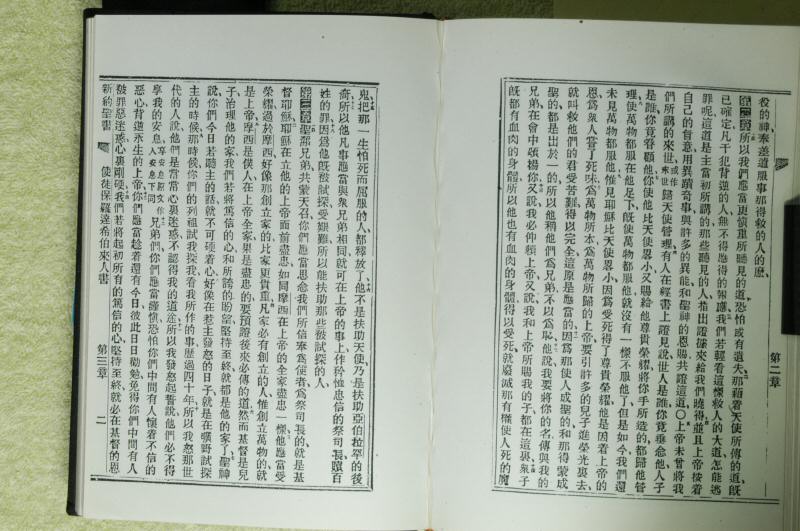 役的神奉差遣服事那得救的人的麽
第二章所以我們應當更慎重所聽見的道恐怕或有遺失那藉着天使所傳的道既
已確定凡干犯背逆的人無不得應得的報應我們若輕看這樣救人的大道怎能逃
罪呢這道是主當初所講的那些聽見的人指出證據來給我們曉得並且上帝按着
自己的旨意用異蹟奇事與許多的異能和聖神的恩賜共證這道〇上帝未曾將我
們所講的來世或作末世歸天使管理有人在經書上證見說世人是誰你竟垂念他人子
是誰你竟眷顧他你使他比天使畧小又賜給他尊貴榮耀將你手所造的都歸他管
理使萬物都服在他足下既使萬物都服他就沒有一樣不服他了但是如今我們還
未見萬物都服他惟見耶穌比天使畧小因爲受死得了尊貴榮耀他是因着上帝的
恩爲衆人嘗了死味爲萬物所本爲萬物所歸的上帝要引許多的兒子進榮光裏去
就叫救他們的君受苦難得以完全這原是應當的因爲那使人成聖的和那得蒙成
聖的都是出於一的所以他稱他們爲兄弟不以爲恥他說我要將你的名傳與我的
兄弟在會中頌揚你又說我必仰賴上帝又說我和上帝所賜我的子都在這裏衆子
既都有血肉的身體所以他也有血肉的身體得以受死就廢滅那有權使人死的魔
第二章
鬼把那一生怕死而屈服的人都釋放了他不是扶助天使乃是扶助亞伯拉罕的後
裔所以他凡事應當與衆兄弟相同就可在上帝的事上作矜恤忠信的祭司長贖百
姓的罪因爲他既被試探受艱難所以能扶助那些被試探的人
第三章聖潔兄弟共蒙天召你們應當思念我們所信崇爲使者爲祭司長的就是基
督耶穌耶穌在立他的上帝面前盡忠如同摩西在上帝的全家盡忠一樣他應當受
榮耀過於摩西好像那創立家的比家更貴重凡家必有創立的人惟創立萬物的就
是上帝摩西是僕人在上帝全家裏是盡忠的要預證後來必傳的道然而基督是兒
子治理他的家我們若將篤信的心和所誇的盼望堅持至終就都是他的家了聖神
說你們今日若聽主的話就不可硬着心好像在惹主發怒的日子就是在曠野試探
主的時候那時候你們的列祖試我探我看我所作的事歷過四十年所以我怒那世
代的人說他們是常常心裏迷惑不認得我的道途所以我發怒起誓說他們必不得
享我的安息享安息原文作入安息下同兄弟們你們應當謹愼恐怕你們中間有人懷着不信的
惡心背逆永生的上帝你們應當趁着還有今日彼此日日勸勉免得你們中間有人
被罪惡迷惑心裏剛硬我們若將起初所有的篤信的心堅持至終就必在基督的恩
新約聖書 使徒保羅達希伯來人書 第三章 二